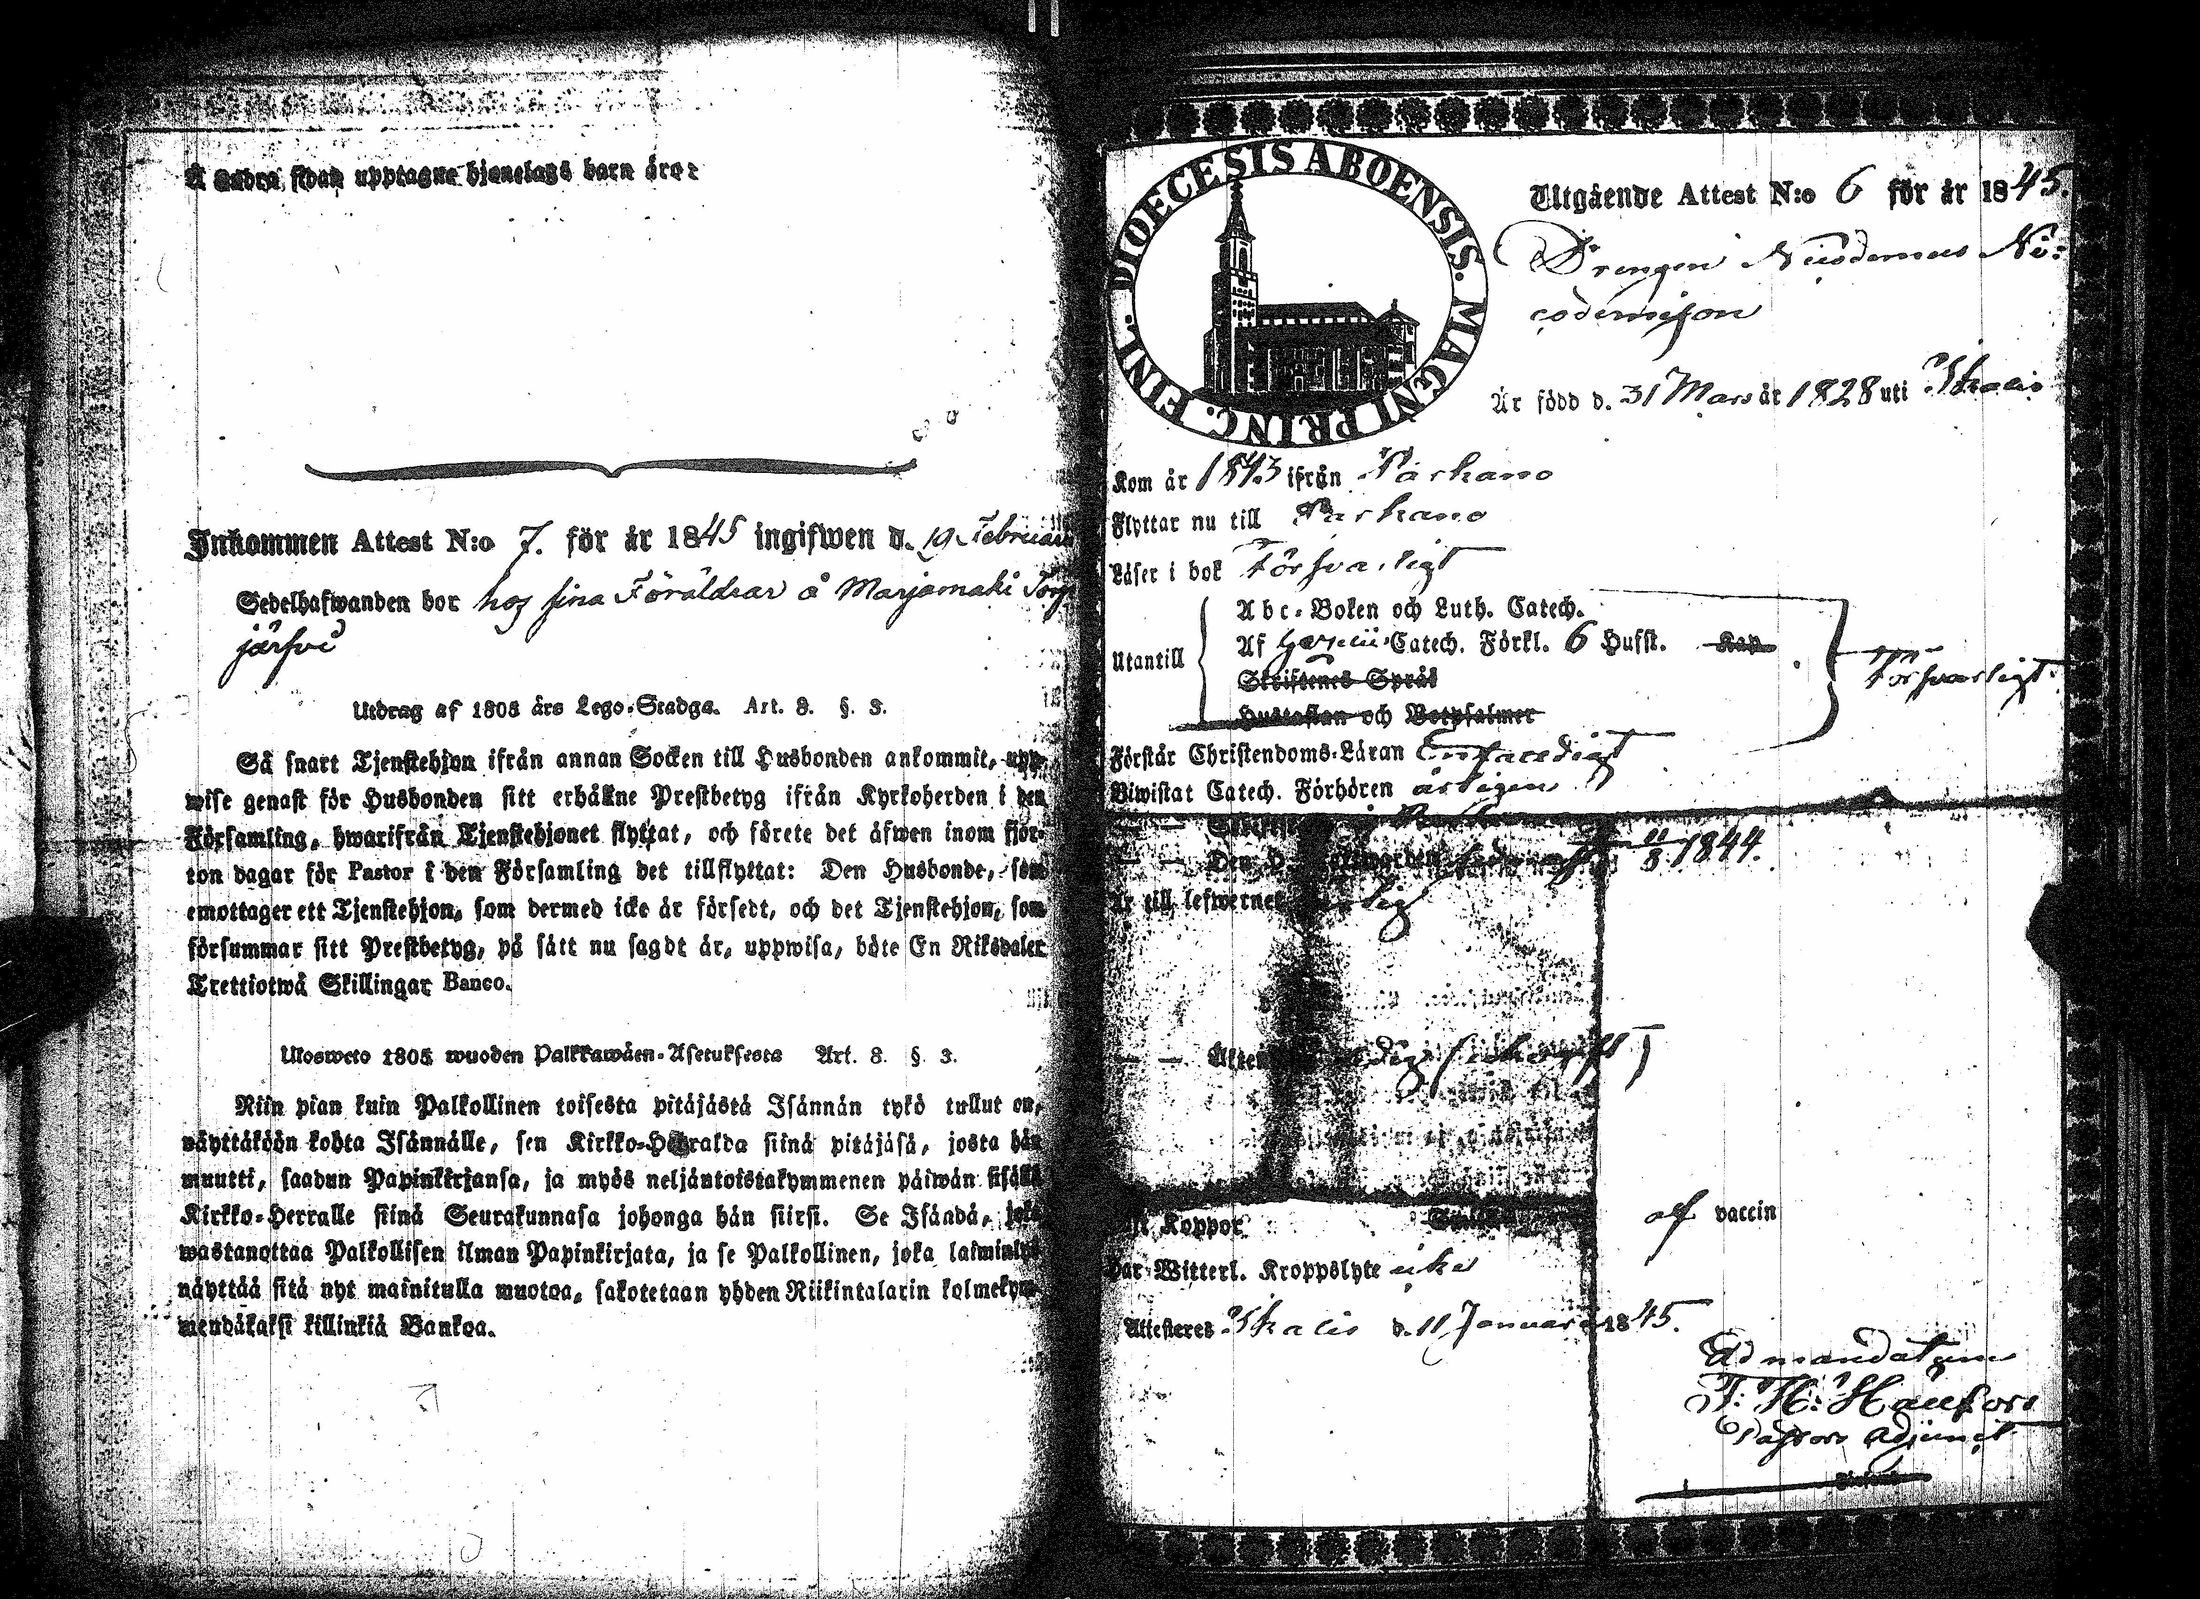 Å andra sidan upptagne hjonelags barn äro:
Inkommen Attest N:o 7. för år 1845 ingifwen d. 19 Februari
Sedelhafwanden bor hos sina Föräldrar å Marjamäki
järfvi
Utdrag af 1805 års Lego-Stadga. Art. 8. §. 3.
Så snart Tjenstehjon ifrån annan Socken till Husbonden ankommit, upp-
wise genast för Husbonden sitt erhållne Prestbetyg ifrån Kyrkoherden i den
Församling, hwarifrån Tjenstehjonet flyttat, och förete det äfwen inom fjor-
ton dagar för Pastor i den Församling det tillflyttat: Den Husbonde, som
emottager ett Tjenstehjon, som dermed icke är försedt, och det Tjenstehjon, som
försummar sitt Prestbetyg, på sätt nu sagdt är, uppwisa, böte En Riksdaler
Trettiotwå Skillingar Banco.
Ulosweto 1805 wuoden Palkkawäen-Asetuksesta Art. 8. §. 3.
Niin pian kuin Palkollinen toisesta pitäjästä Isännän tykö tullut on,
näyttäköön kohta Isännälle, sen Kirkko-Herralda siinä pitäjäsä, josta hän
muutti, saadun Papinkirjansa, ja myös neljäntoistakymmenen päiwän sisällä
Kirkko-Herralle siinä Seurakunnasa johonga hän siirsi. Se Isändä, joka
wastanottaa Palkollisen ilman Papinkirjata, ja se Palkollinen, joka laiminlyö
näyttää sitä nyt mainitulla muotoa, sakotetaan yhden Riikintalarin kolmekym-
mendäkaksi killinkiä Bankoa.
DIOECESIS ABOENSIS. MAGNI PRINC. FINL.
Utgående Attest N:o 6 för år 1845.
Drengen Nicodemus Ni-
codemisson
Är född d. 31 Mars år 1828 uti Ikalis
Kom år 1843 ifrån Parkano
Flyttar nu till Parkano
Läser i bok Försvarligt
Utantill
Abc-Boken och Luth. Catech.
Af Gezelii Catech. Förkl. 6 Hufst. Kap.
Skriftenes Språk
Hustaflan och Botpsalmer
Försvarligt
Förstår Christendoms-Läran Enfaldigt
Biwistat Catech. Förhören årligen
11/8 1844.
är till lefwernet
Koppor
af vaccin
Har Witterl. Kroppslyte icke
Attesteres Ikalis d. 11 Januari 1845.
Ad mandatum
Pastors Adjunct